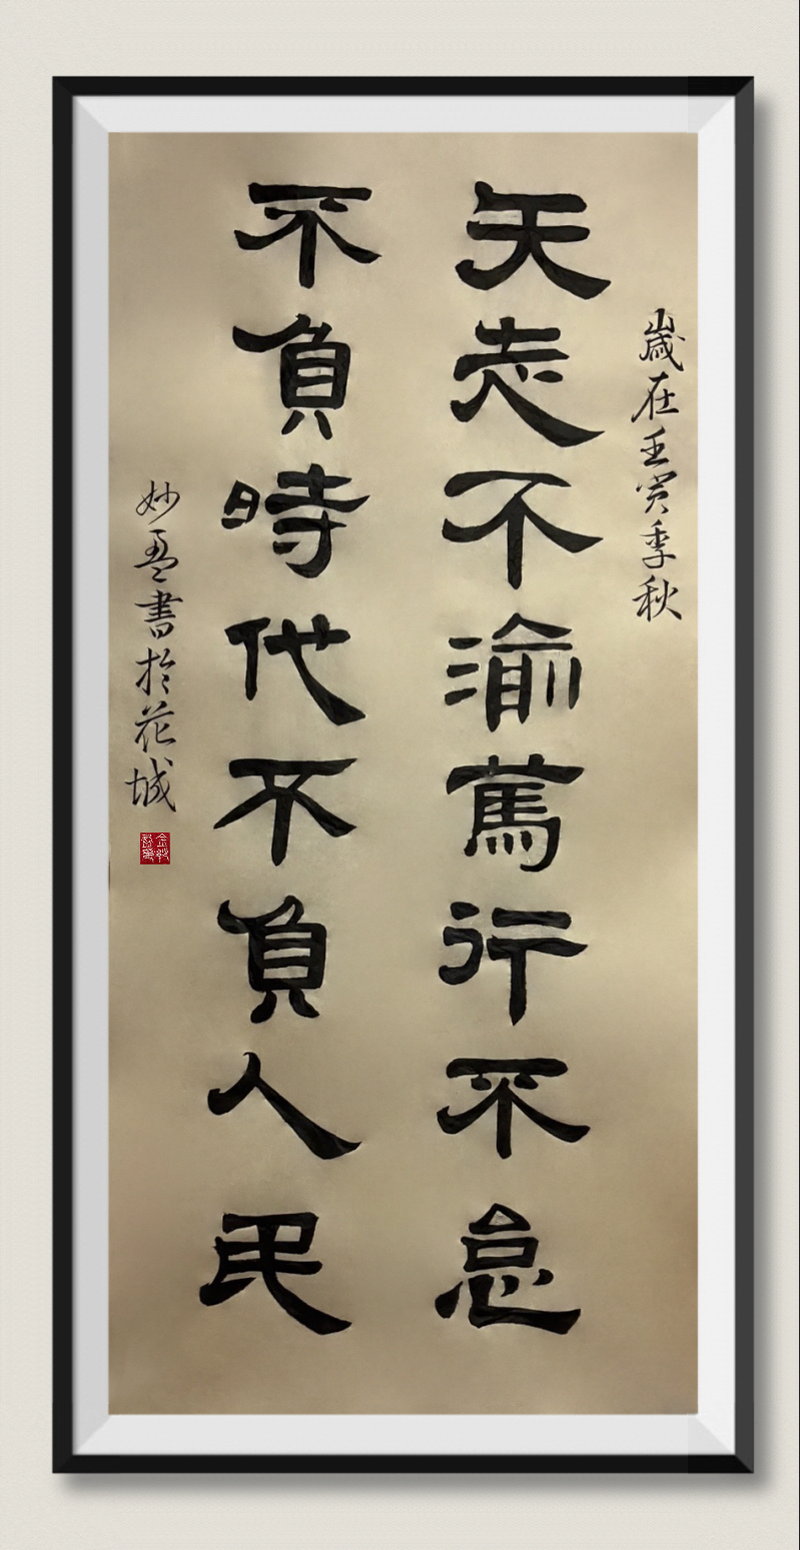 歲在壬寅季秋
矢志不渝篤行不怠
不負時代不負人民
妙盈書於花城